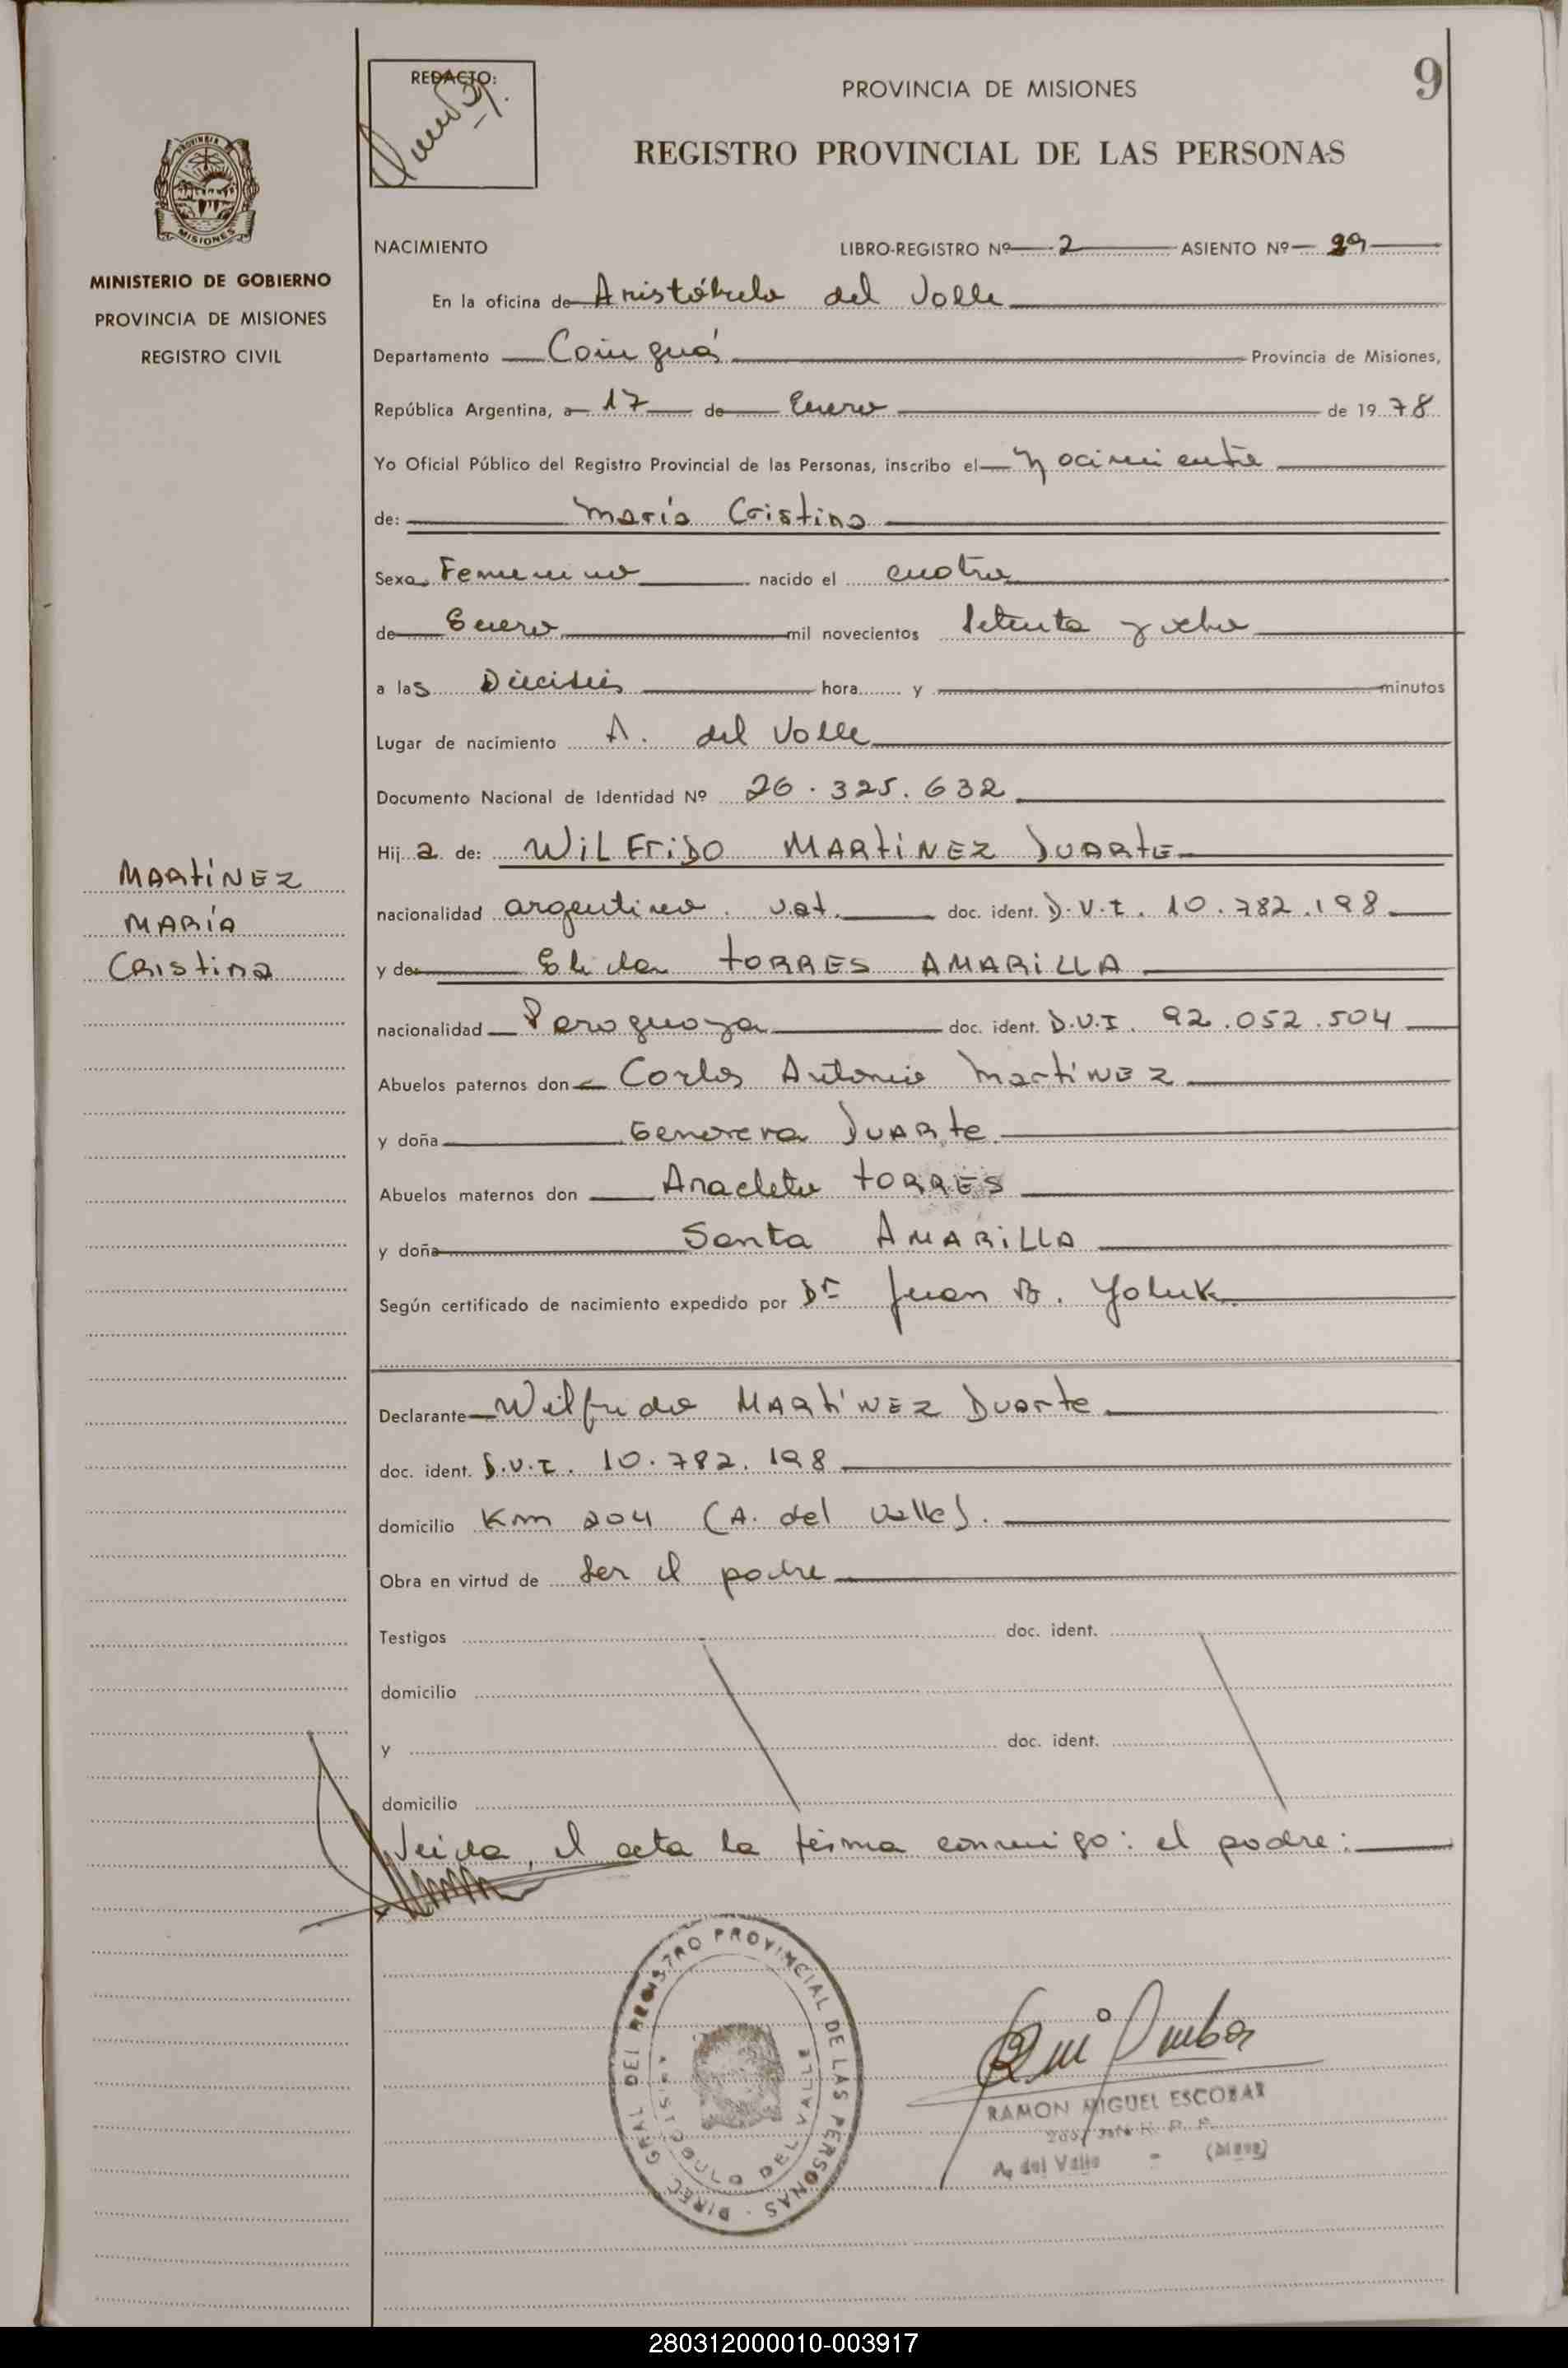 REDACTO:
PROVINCIA DE MISIONES
9
REGISTRO PROVINCIAL DE LAS PERSONAS
PROVINCIA DE
MISIONES
MINISTERIO DE GOBIERNO
PROVINCIA DE MISIONES
REGISTRO CIVIL
NACIMIENTO LIBRO-REGISTRO Nº 2 ASIENTO Nº 29
En la oficina de Aristóbulo del Valle
Departamento Cainguá Provincia de Misiones,
República Argentina, a 17 de Enero de 1978
Yo Oficial Público del Registro Provincial de las Personas, inscribo el Nacimiento
de: María Cristina
Sexo Femenino nacido el cuatro
de Enero mil novecientos Setenta y ocho
a las Dieciseis hora y minutos
Lugar de nacimiento A. del Valle
Documento Nacional de Identidad Nº 26.325.632
Hija de: WiLFriDO MARtíNEZ DUARtE
nacionalidad argentino nat. doc. ident. D.N.I. 10.782.198
y de Elida tORRES AMARiLLA
nacionalidad Paraguaya doc. ident. D.N.I. 92.052.504
Abuelos paternos don Carlos Antonio MartíNEZ
y doña Genoveva DUARte
Abuelos maternos don Anacleto tORRES
y doña Santa AMARiLLA
Según certificado de nacimiento expedido por Dr Juan B. Yoluk
MARtíNEZ
MARÍA
CRistina
Declarante Wilfrido MARtíNEZ Duarte
doc. ident. D.N.I. 10.782.198
domicilio Km 204 (A. del Valle).
Obra en virtud de Ser el padre
Testigos doc. ident.
domicilio
y doc. ident.
domicilio
Leida el acta la firma conmigo: el padre:
DIREC. GRAL. DEL REGISTRO PROVINCIAL DE LAS PERSONAS
ARISTOBULO DEL VALLE
RAMON MIGUEL ESCOBAR
A. del Valle - (Mnes)
280312000010-003917